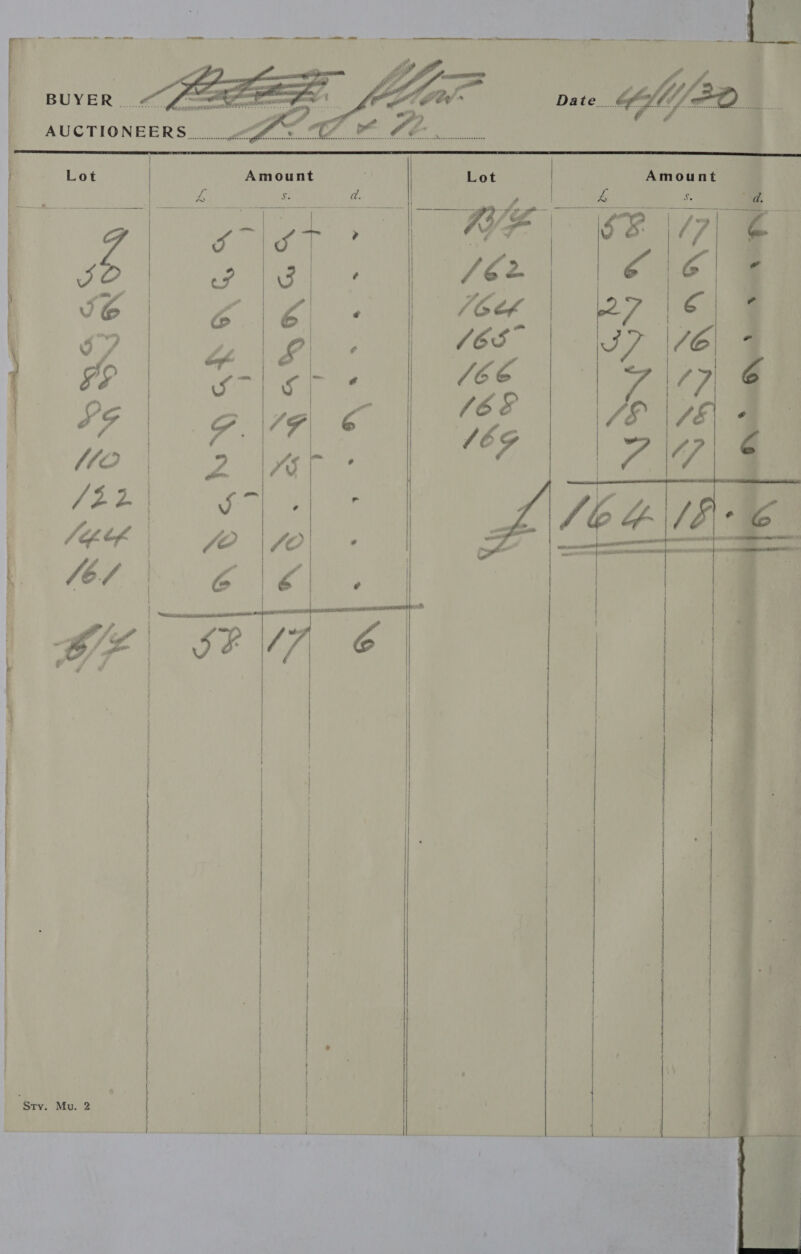 BUYER
Date 4/11/30
AUCTIONEERS
Lot Amount Lot Amount
£ s. d. £ s. d.
7 5 5 . B/F 58 17 6
50 3 3 . 162 6 6 .
56 6 6 . 164 27 6 .
57 4 8 . 165 37 16 .
88 5 5 . 166 7 17 6
89 9 19 6 168 18 18 .
110 2 15 . 169 7 17 6
122 5 . . £ 164 18 . 6
144 10 10 .
161 6 6 .
C/F 58 17 6
Sty. Mu. 2